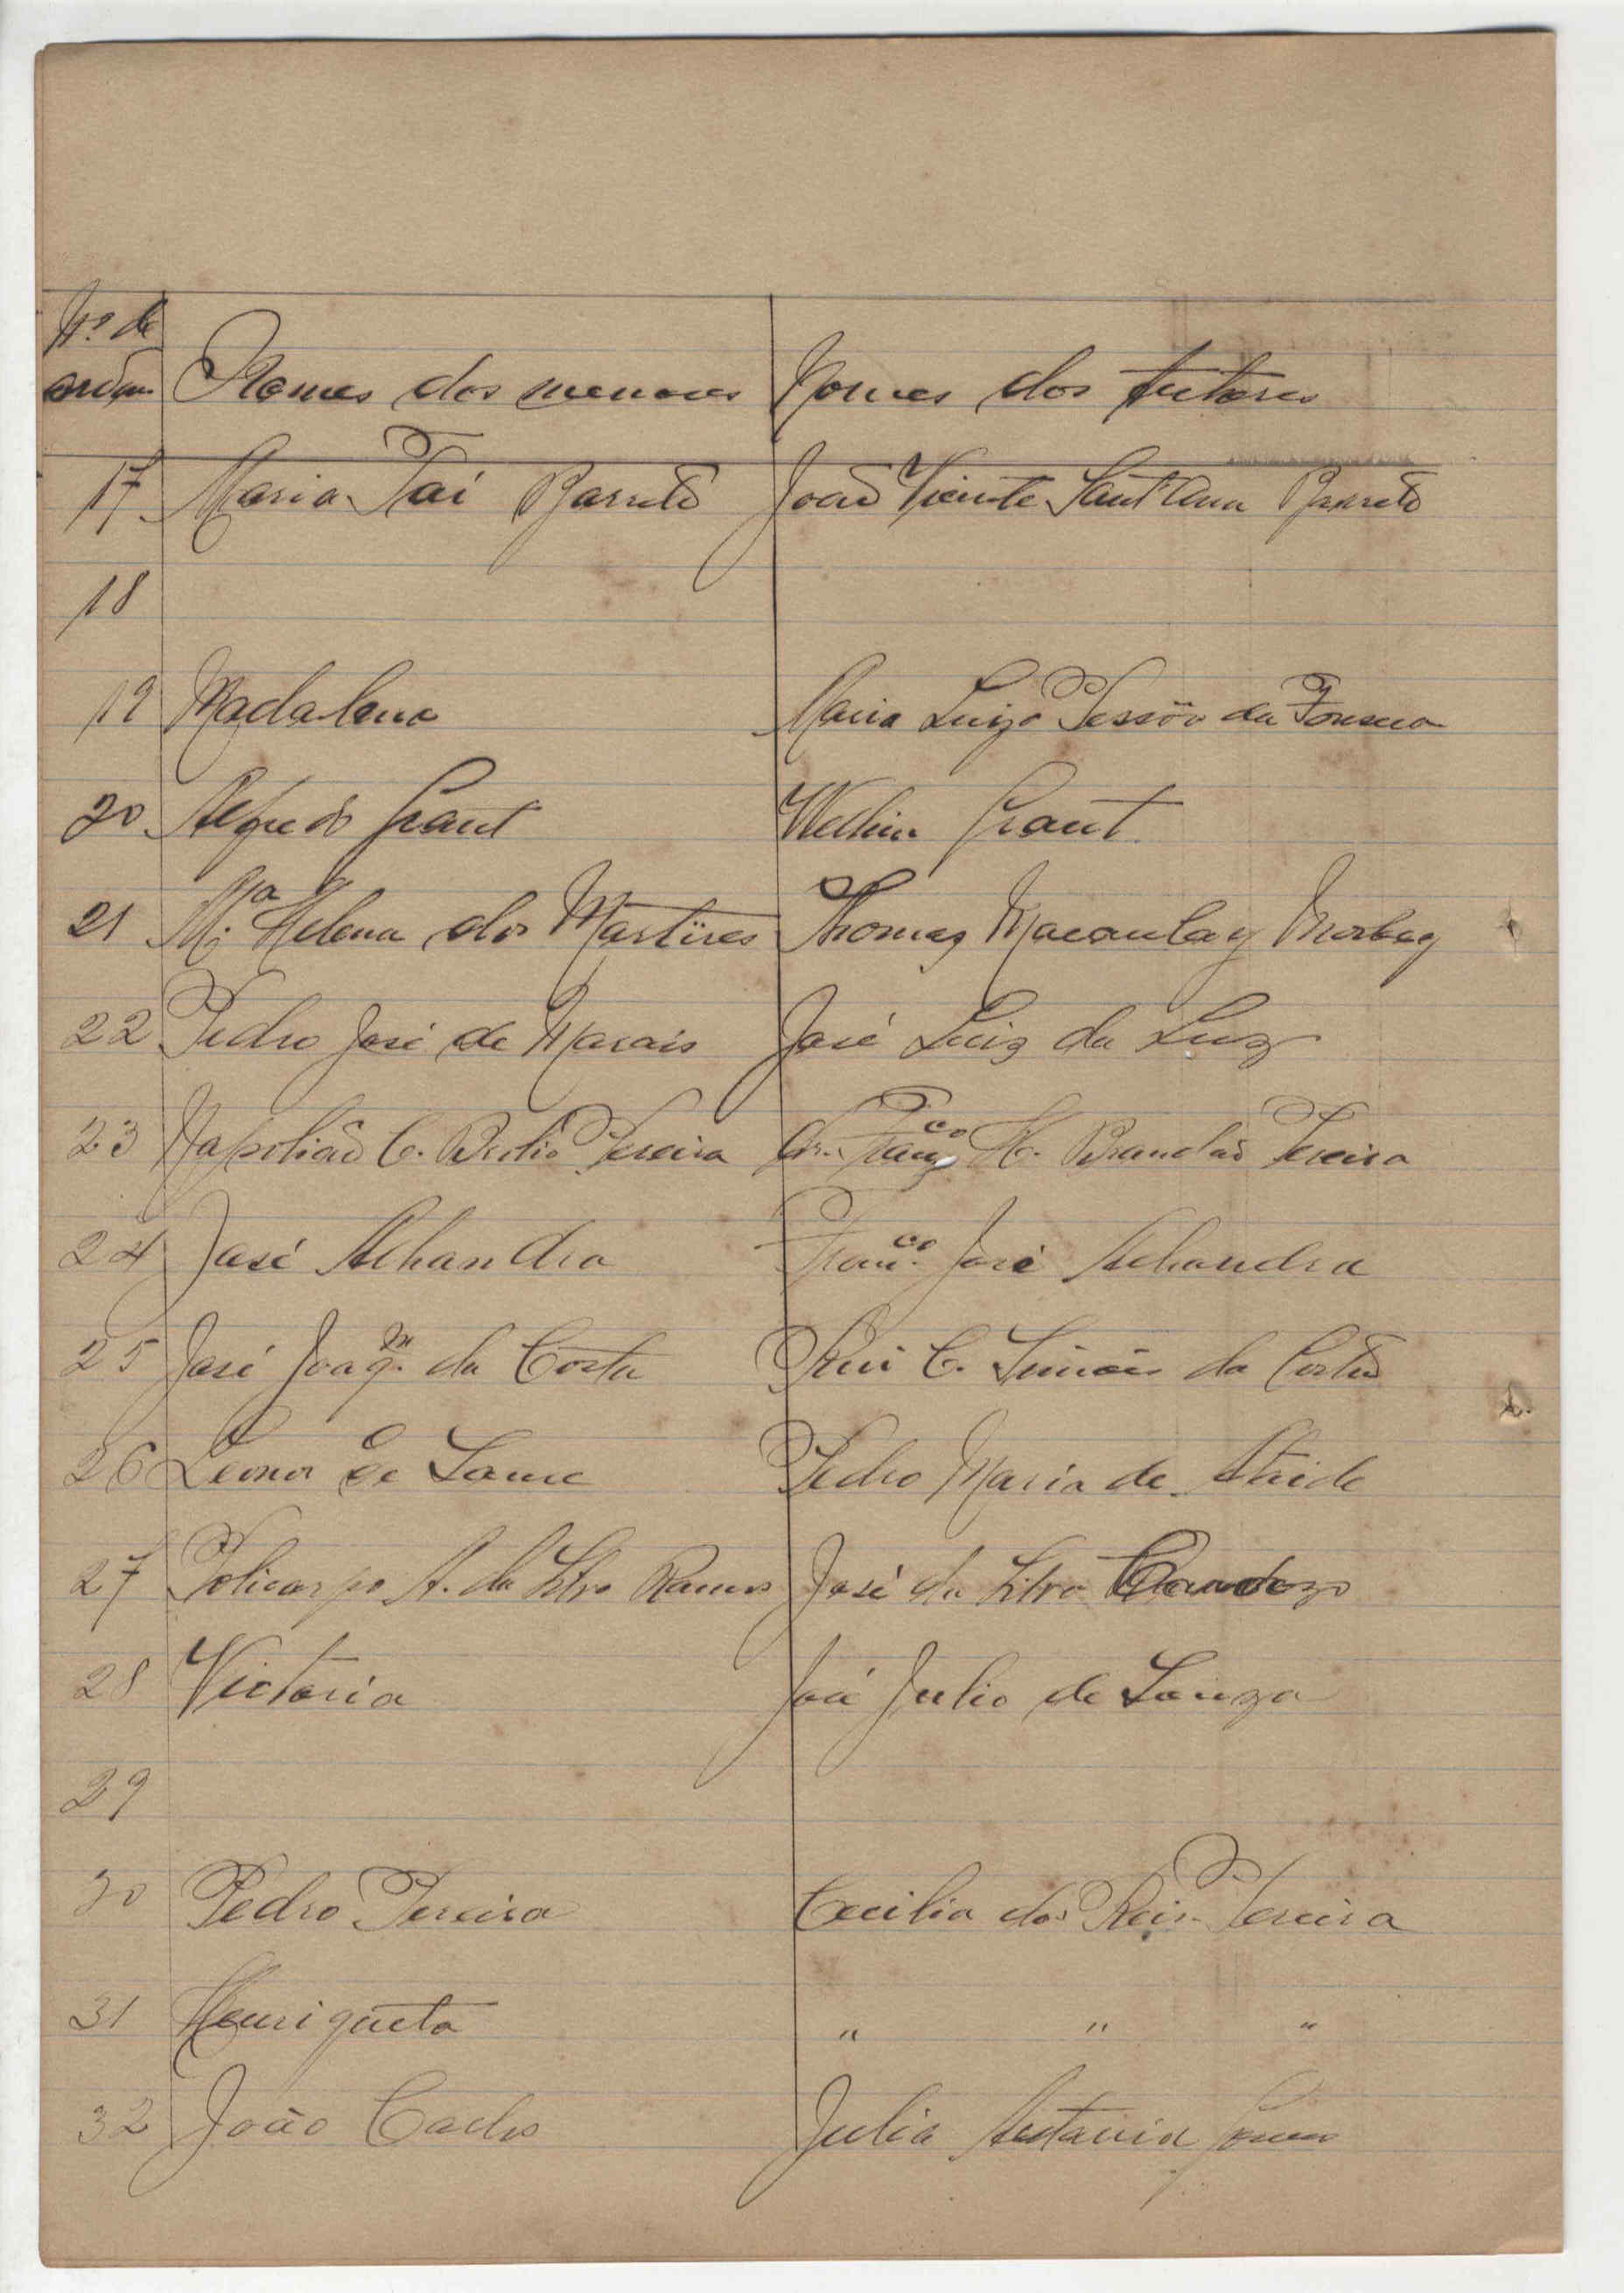 Nº de
ordem Nomes dos menores Nomes dos tutores
17 Maria Pai Barreto João Vicente Sant'Anna Barreto
18
19 Madalena Maria Luiza Pessôa da Fonseca
20 Alfredo Grant Grant
21 M.ª Helena dos Martires Thomaz Macaulay Morbey
22 Pedro José de Morais José Luiz da Luz
23 Napolião C. Pereira Dr. Franc.co H. Brandão Pereira
24 José Alhandra Franc.co José Alhandra
25 José Joaq.m da Costa Rui C. Simões da Costa
26 Leonor de Pedro Maria de Ataide
27 Policarpo A. da Silva Ramos José da Silva Cardozo
28 Victoria José Julio de Souza
29
30 Pedro Pereira Cecilia dos Reis Pereira
31 Henriqueta " " "
32 João Carlos Julia Antonia Gomes